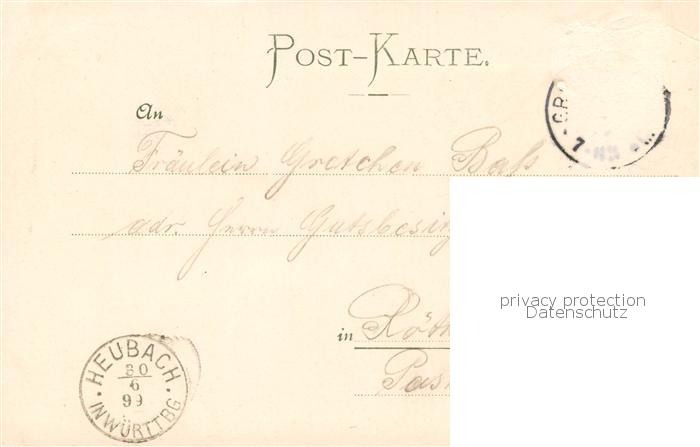 POST-KARTE.
An
Fräulein Gretchen Baß
adr. Herrn Gutsbesitz
in Röth
Pas
privacy protection
Datenschutz
HEUBACH
30
6
99
IN WÜRTTBG
GR
7